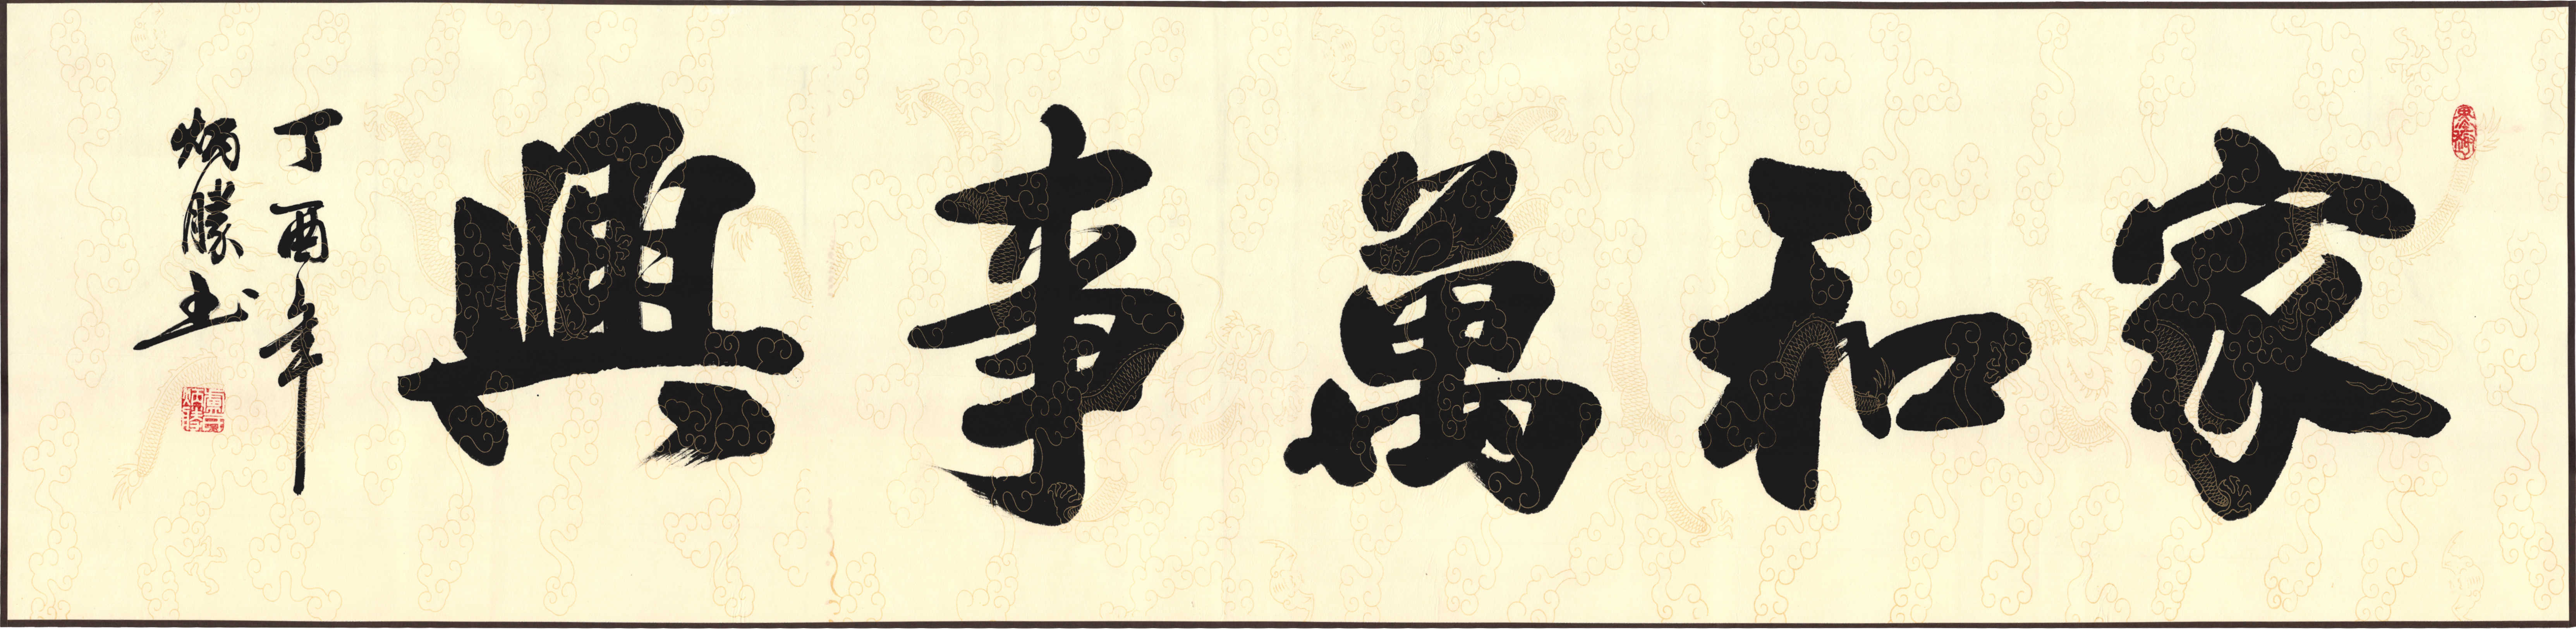 家和萬事興
丁酉年
炳勝书